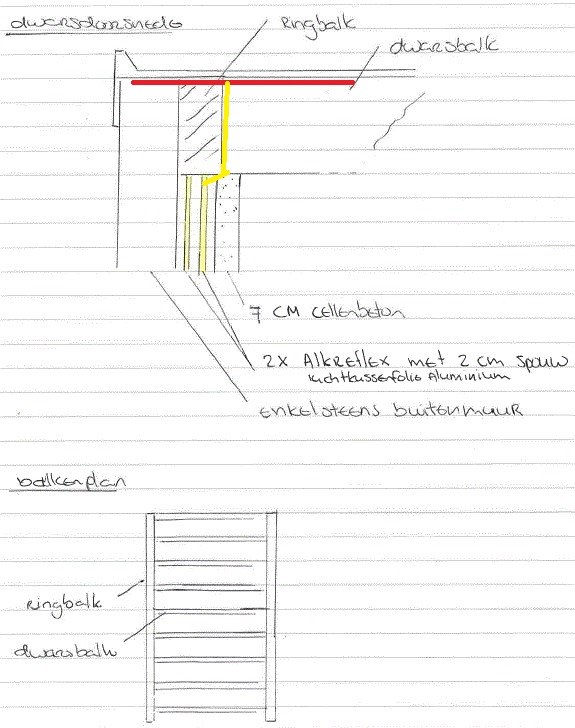 dwarsdoorsnede
Ringbalk
dwarsbalk
7 CM CELLENBETON
2X AlkREflEX met 2 cm spouw
luchtkussenfolie Aluminium
ENKELSTEENS buitENMUUR
balkenplan
Ringbalk
dwarsbalk